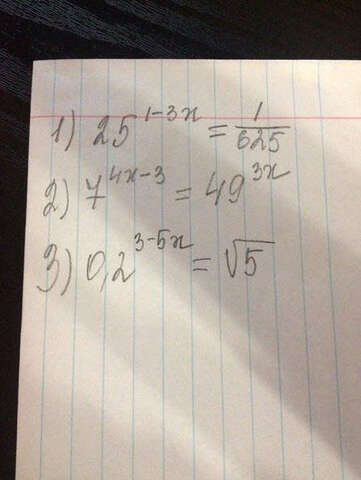 1) 25^{1-3x} = \frac{1}{625}
2) 7^{4x-3} = 49^{3x}
3) 0,2^{3-5x} = \sqrt{5}